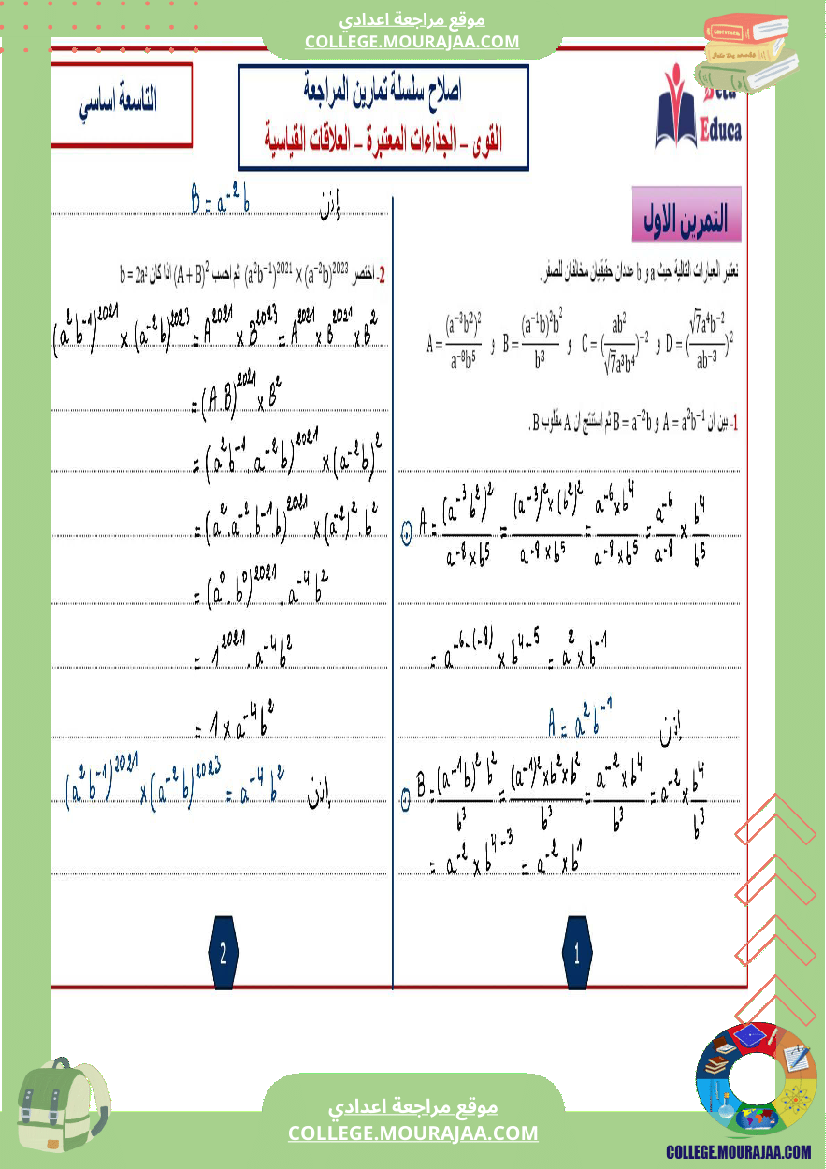 موقع مراجعة اعدادي
COLLEGE.MOURAJAA.COM
Educa
اصلاح سلسلة تمارين المراجعة
القوى – الجذاءات المعتبرة – العلاقات القياسية
التاسعة اساسي
التمرين الاول
نعتبر العبارات التالية حيث a و b عددان حقيقيان مخالفان للصفر.
A = (a⁻³b²)²/a⁻⁸b⁵ و B = (a⁻¹b)²b²/b³ و C = (ab²/√7a³b⁴)⁻² و D = (√7a⁴b⁻²/ab⁻³)²
1- بين ان A = a²b⁻¹ و B = a⁻²b ثم استنتج ان A مقلوب B .
A = (a⁻³b²)²/a⁻⁸×b⁵ = (a⁻³)²×(b²)²/a⁻⁸×b⁵ = a⁻⁶×b⁴/a⁻⁸×b⁵ = a⁻⁶/a⁻⁸ × b⁴/b⁵
= a⁻⁶⁻⁽⁻⁸⁾ × b⁴⁻⁵ = a² × b⁻¹
إذن A = a²b⁻¹
B = (a⁻¹b)²b²/b³ = (a⁻¹)²×b²×b²/b³ = a⁻²×b⁴/b³ = a⁻²×b⁴/b³
= a⁻² × b⁴⁻³ = a⁻² × b¹
1
إذن B = a⁻²b
2- اختصر (a²b⁻¹)²⁰²¹ × (a⁻²b)²⁰²³ ثم احسب (A + B)² اذا كان b = 2a²
(a²b⁻¹)²⁰²¹ × (a⁻²b)²⁰²³ = A²⁰²¹ × B²⁰²³ = A²⁰²¹ × B²⁰²¹ × B²
= (A.B)²⁰²¹ × B²
= (a²b⁻¹.a⁻²b)²⁰²¹ × (a⁻²b)²
= (a².a⁻².b⁻¹b)²⁰²¹ × (a⁻²)².b²
= (a⁰.b⁰)²⁰²¹ . a⁻⁴b²
= 1²⁰²¹ . a⁻⁴b²
= 1 × a⁻⁴b²
إذن (a²b⁻¹)²⁰²¹ × (a⁻²b)²⁰²³ = a⁻⁴b²
2
موقع مراجعة اعدادي
COLLEGE.MOURAJAA.COM
COLLEGE.MOURAJAA.COM